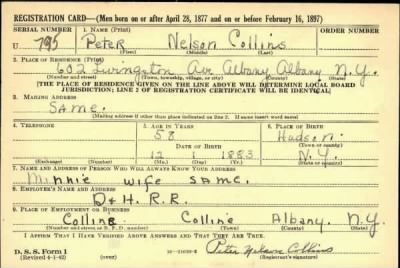 REGISTRATION CARD—(Men born on or after April 28, 1877 and on or before February 16, 1897)
SERIAL NUMBER 1. NAME (Print) ORDER NUMBER
U 795 Peter Nelson Collins
(First) (Middle) (Last)
2. PLACE OF RESIDENCE (Print)
602 Livingston Ave Albany Albany N.Y.
(Number and street) (Town, township, village, or city) (County) (State)
[THE PLACE OF RESIDENCE GIVEN ON THE LINE ABOVE WILL DETERMINE LOCAL BOARD
JURISDICTION; LINE 2 OF REGISTRATION CERTIFICATE WILL BE IDENTICAL]
3. MAILING ADDRESS
SAME.
(Mailing address if other than place indicated on line 2. If same insert word same)
4. TELEPHONE 5. AGE IN YEARS 6. PLACE OF BIRTH
58 Hudson
DATE OF BIRTH (Town or county)
12 1 1883 N.Y.
(Exchange) (Number) (Mo.) (Day) (Yr.) (State or country)
7. NAME AND ADDRESS OF PERSON WHO WILL ALWAYS KNOW YOUR ADDRESS
Minnie wife SAME.
8. EMPLOYER'S NAME AND ADDRESS
D+H. R.R.
9. PLACE OF EMPLOYMENT OR BUSINESS
Colline Colline Albany. N.Y
(Number and street or R. F. D. number) (Town) (County) (State)
I AFFIRM THAT I HAVE VERIFIED ABOVE ANSWERS AND THAT THEY ARE TRUE.
D. S. S. Form 1 Peter Nelson Collins
(Revised 4-1-42) (over) (Registrant's signature)